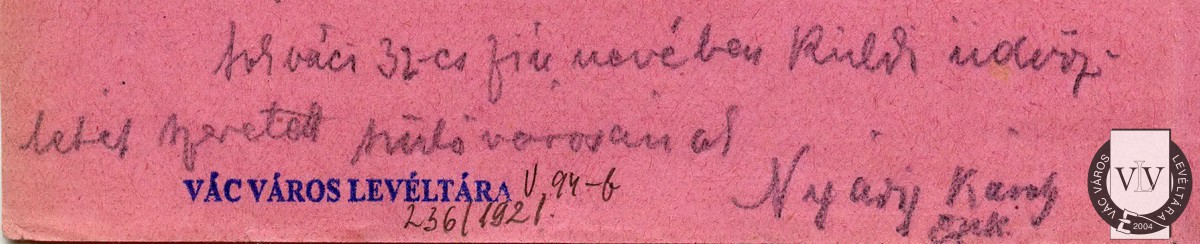 Sok váci 32-es fiú nevében küldi üdvöz-
letét szeretett szülővárosának
VÁC VÁROS LEVÉLTÁRA V. 94-b
236/1921.
Nyáry
VÁC VÁROS LEVÉLTÁRA
VLV
2004